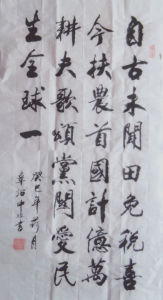 自古未聞田免稅喜
今扶農首國計億萬
耕夫歌頌黨關愛民
生全球一
癸巳年荷月